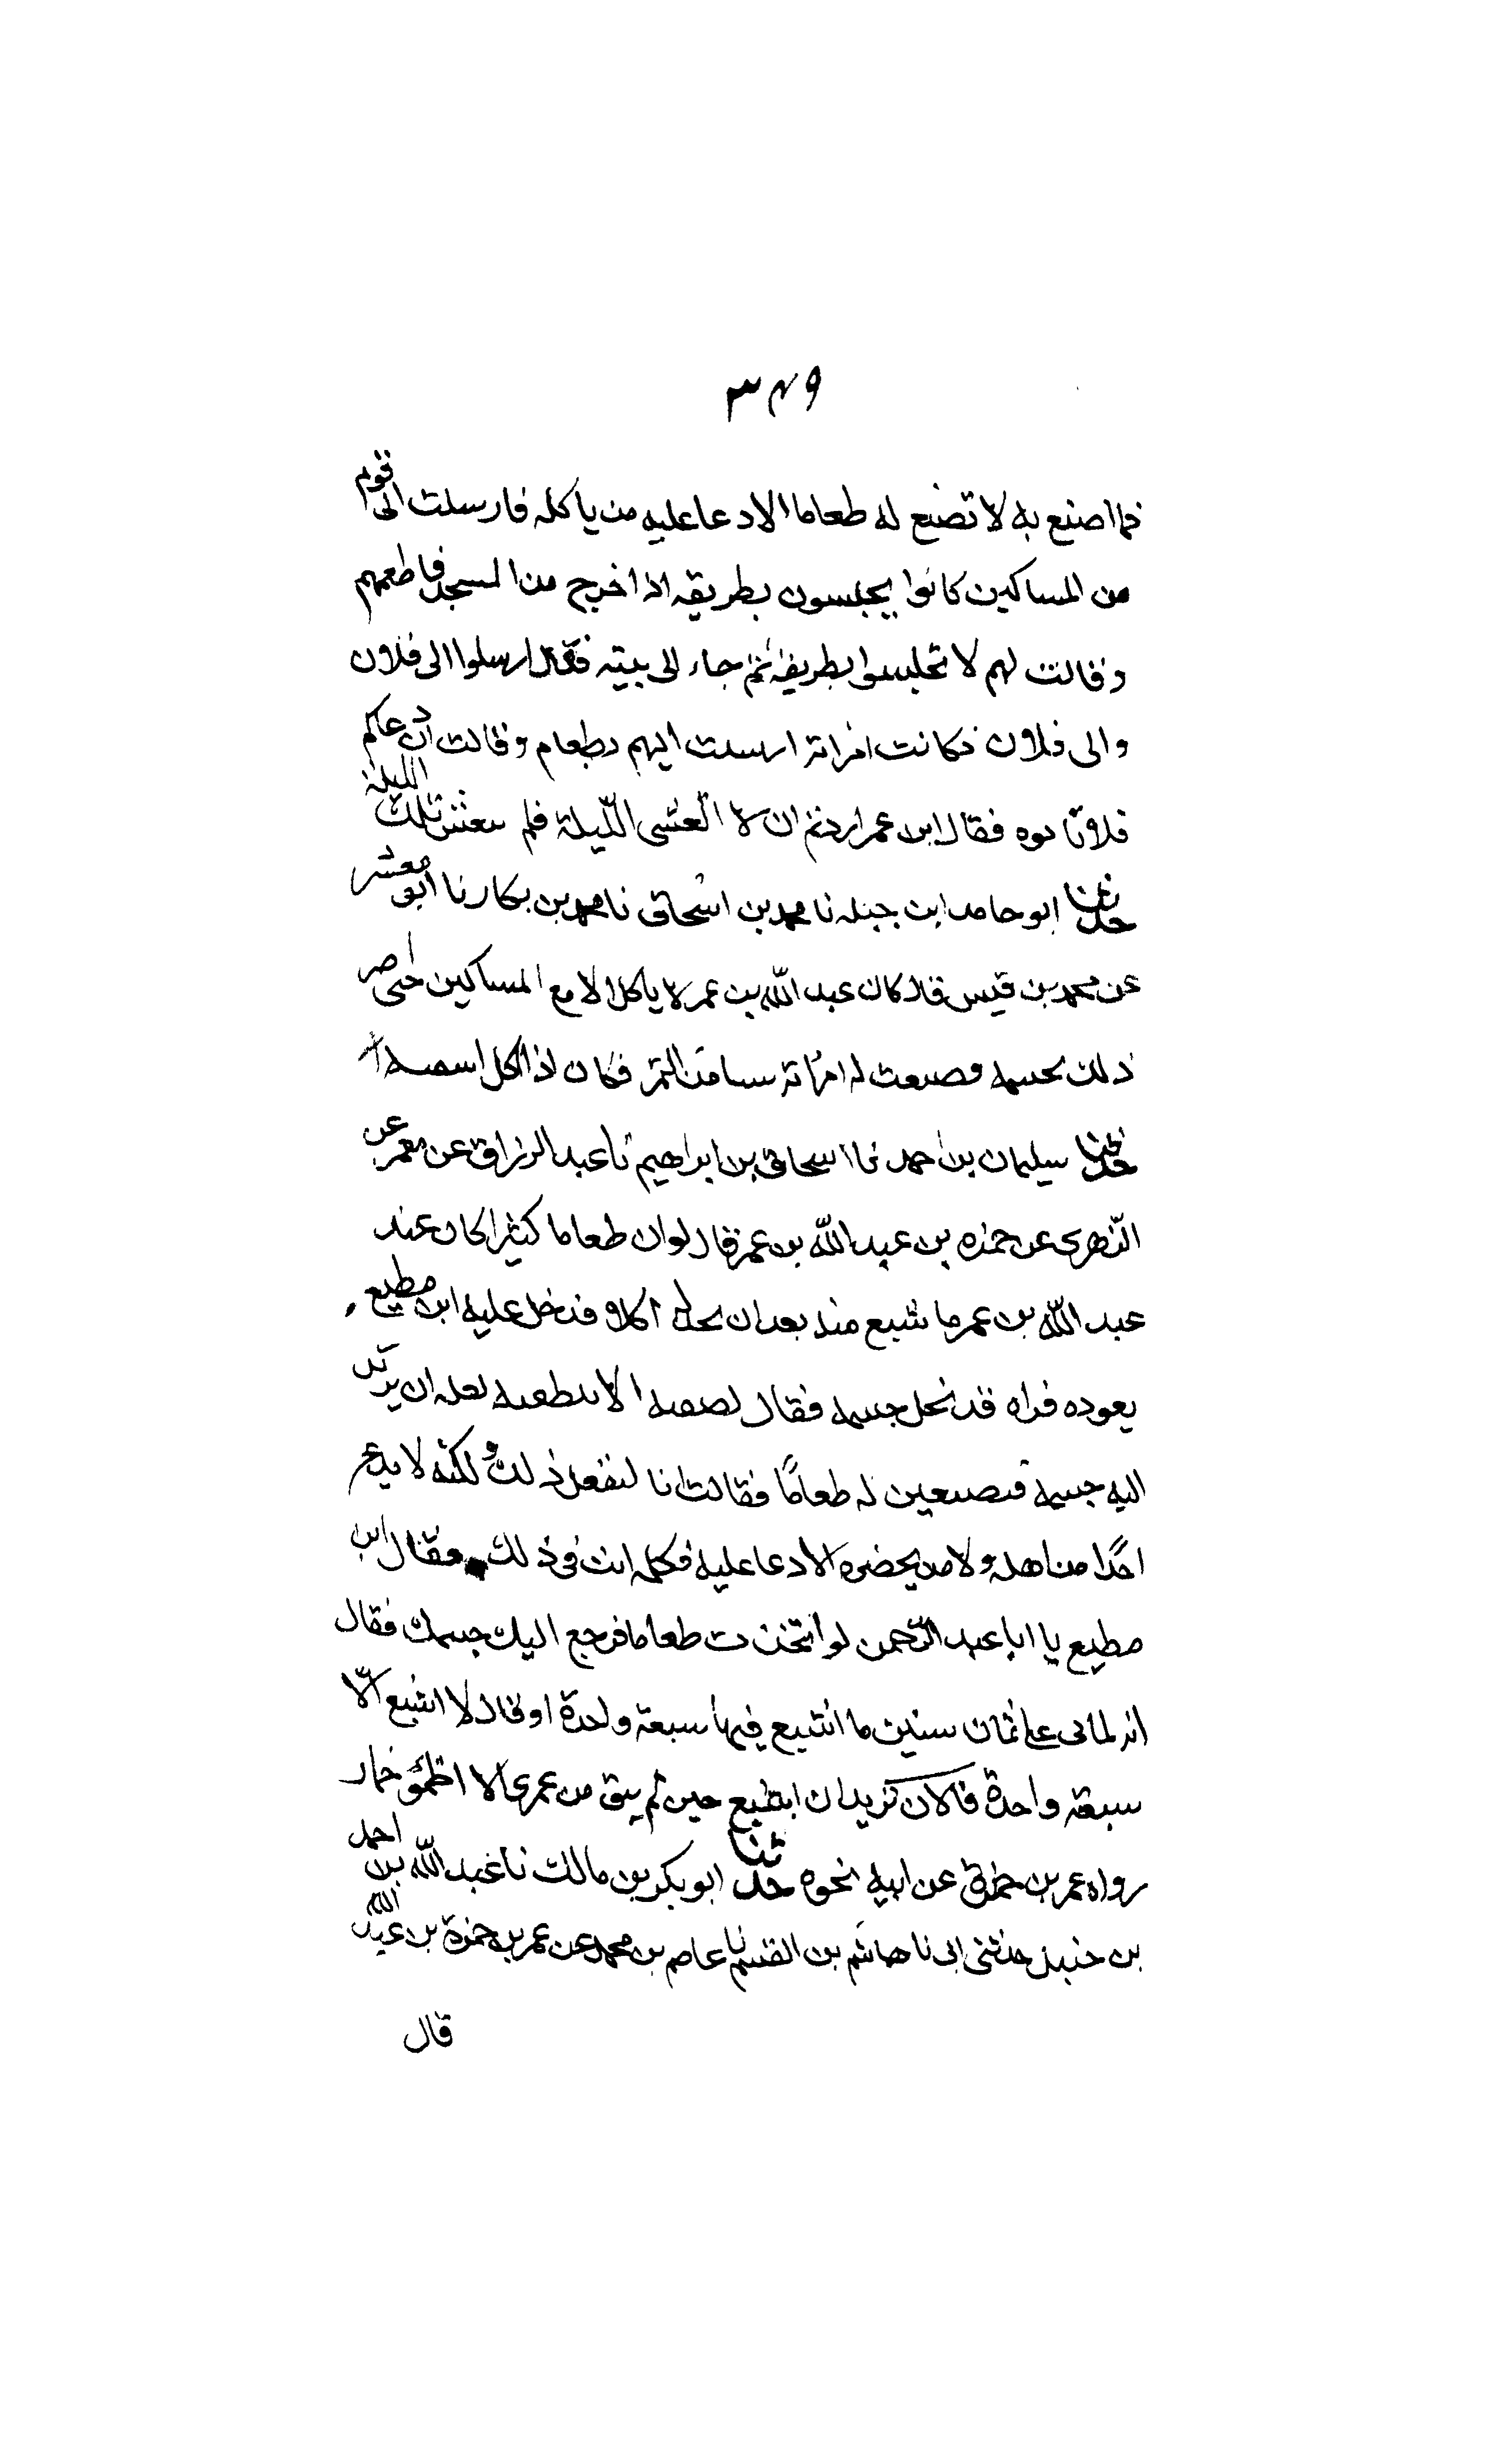 ٣٤٩
فما اصنع به لا تصنع له طعاما الا دعا عليه من ياكله فارسلت الى قوم
من المساكين كانوا يجلسون بطريقه اذا خرج من المسجد فاطعمهم
وقالت لهم لا تجلسوا بطريقه ثم جاء الى بيته فقال ارسلوا الى فلان
والى فلان فكانت امراته ارسلت اليهم بطعام وقالت ان دعاكم
فلا تاتوه فقال ابن عمر اردتم ان لا اتعشى الليلة فلم يتعش تلك الليلة
حدثنا ابو حامد ابن جبله نا محمد بن اسحاق نا محمد بن بكار نا ابو معشر
عن محمد بن قيس قال كان عبد الله بن عمر لا ياكل الا مع المساكين حتى اضر
ذلك بجسمه فصنعت له امراته شيا من التمر فكان اذا اكل اسقته
حدثنا سليمان بن احمد نا اسحاق بن ابراهيم نا عبد الرزاق عن معمر عن
الزهرى عن حمزه بن عبد الله بن عمر قال لو ان طعاما كثيرا كان عند
عبد الله بن عمر ما شبع منه بعد ان يجد له اكلا فدخل عليه ابن مطيع
يعوده فراه قد نحل جسمه فقال لصفيه الا تلطفيه لعله ان يرتد
اليه جسمه فتصنعين له طعامًا فقالت انا لنفعل ذلك ولكنه لا يدع
احدًا من اهله ولا من يحضره الا دعا عليه فكلمه انت فى ذلك فقال ابن
مطيع يا ابا عبد الرحمن لو اتخذت طعاما فرجع اليك جسمك فقال
انه لياتى على ثمان سنين ما اشبع فيها شبعة واحدة او قال لا اشبع الا
شبعة واحدة فالان تريد ان اشبع حين لم يبق من عمرى الا اظمؤ حمار
رواه عمر بن حمزة عن ابيه نحوه حدثنا ابو بكر بن مالك نا عبد الله بن احمد
بن حنبل حدثنى ابى نا هاشم بن القسم نا عاصم بن محمد عن عمر بن حمزة بن عبد الله
قال